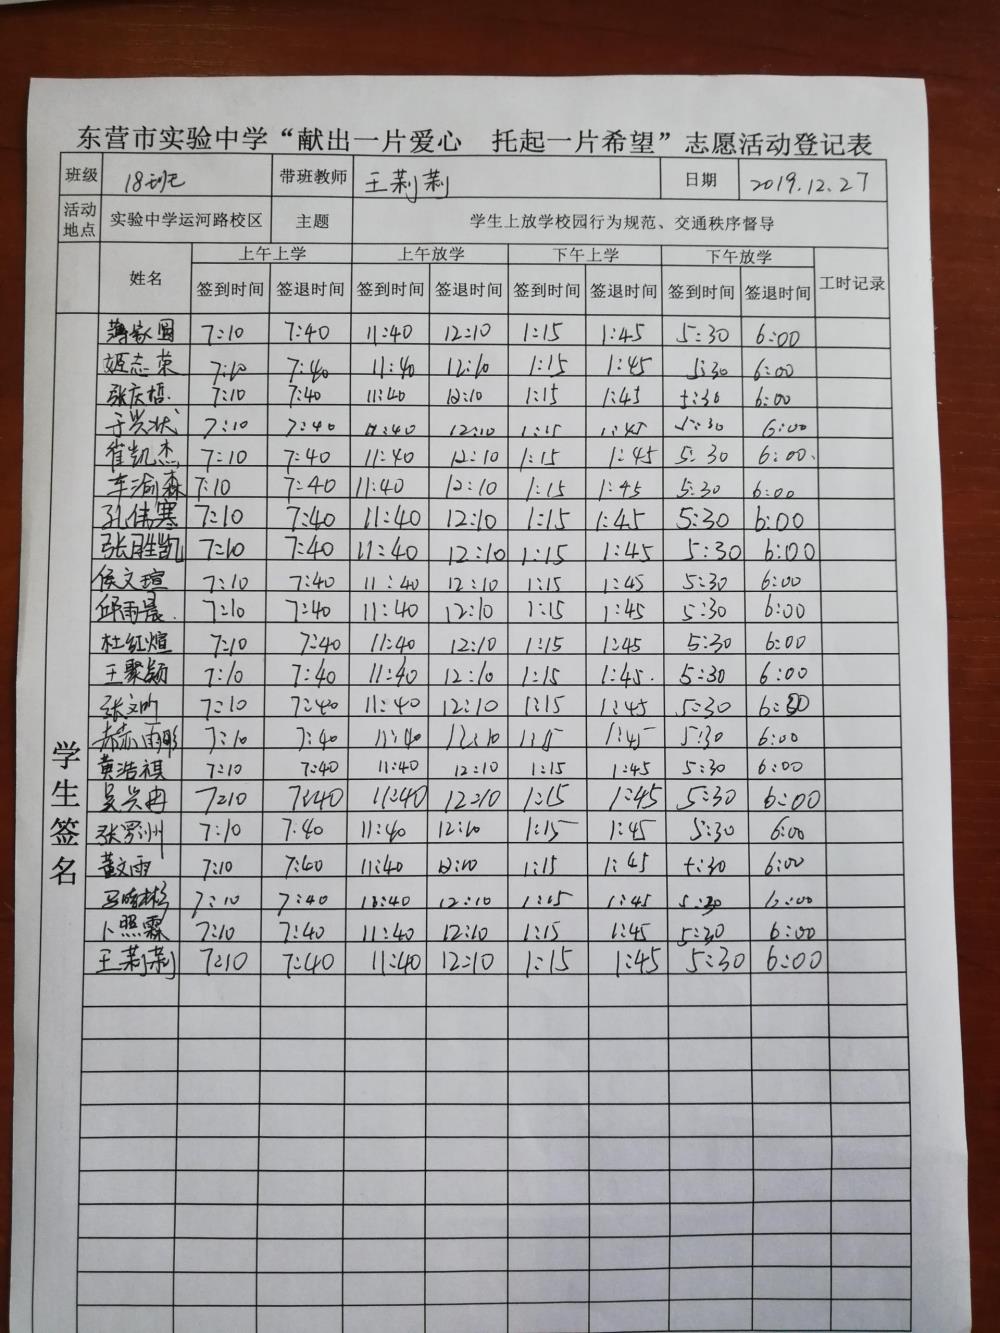 东营市实验中学“献出一片爱心 托起一片希望”志愿活动登记表
班级 18班 带班教师 王莉莉 日期 2019.12.27
活动地点 实验中学运河路校区 主题 学生上放学校园行为规范、交通秩序督导
姓名 上午上学 上午放学 下午上学 下午放学 工时记录
签到时间 签退时间 签到时间 签退时间 签到时间 签退时间 签到时间 签退时间
学生签名
7:10 7:40 11:40 12:10 1:15 1:45 5:30 6:00
姬志荣 7:10 7:40 11:40 12:10 1:15 1:45 5:30 6:00
张庆哲 7:10 7:40 11:40 12:10 1:15 1:45 5:30 6:00
于兴状 7:10 7:40 11:40 12:10 1:15 1:45 5:30 6:00
崔凯杰 7:10 7:40 11:40 12:10 1:15 1:45 5:30 6:00
车渝森 7:10 7:40 11:40 12:10 1:15 1:45 5:30 6:00
孔伟寒 7:10 7:40 11:40 12:10 1:15 1:45 5:30 6:00
张胜凯 7:10 7:40 11:40 12:10 1:15 1:45 5:30 6:00
侯文瑄 7:10 7:40 11:40 12:10 1:15 1:45 5:30 6:00
邱雨晨 7:10 7:40 11:40 12:10 1:15 1:45 5:30 6:00
杜红煊 7:10 7:40 11:40 12:10 1:15 1:45 5:30 6:00
王聚颖 7:10 7:40 11:40 12:10 1:15 1:45 5:30 6:00
张文昕 7:10 7:40 11:40 12:10 1:15 1:45 5:30 6:00
雨彤 7:10 7:40 11:40 12:10 1:15 1:45 5:30 6:00
黄浩祺 7:10 7:40 11:40 12:10 1:15 1:45 5:30 6:00
吴兴冉 7:10 7:40 11:40 12:10 1:15 1:45 5:30 6:00
张罗州 7:10 7:40 11:40 12:10 1:15 1:45 5:30 6:00
董文雨 7:10 7:40 11:40 12:10 1:15 1:45 5:30 6:00
7:10 7:40 11:40 12:10 1:15 1:45 5:30 6:00
卜照霖 7:10 7:40 11:40 12:10 1:15 1:45 5:30 6:00
王莉莉 7:10 7:40 11:40 12:10 1:15 1:45 5:30 6:00